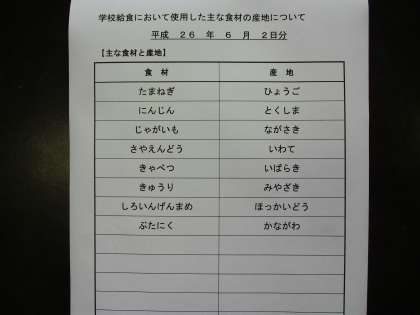 学校給食において使用した主な食材の産地について
平成 26 年 6 月 2日分
【主な食材と産地】
食 材 産 地
たまねぎ ひょうご
にんじん とくしま
じゃがいも ながさき
さやえんどう いわて
きゃべつ いばらき
きゅうり みやざき
しろいんげんまめ ほっかいどう
ぶたにく かながわ